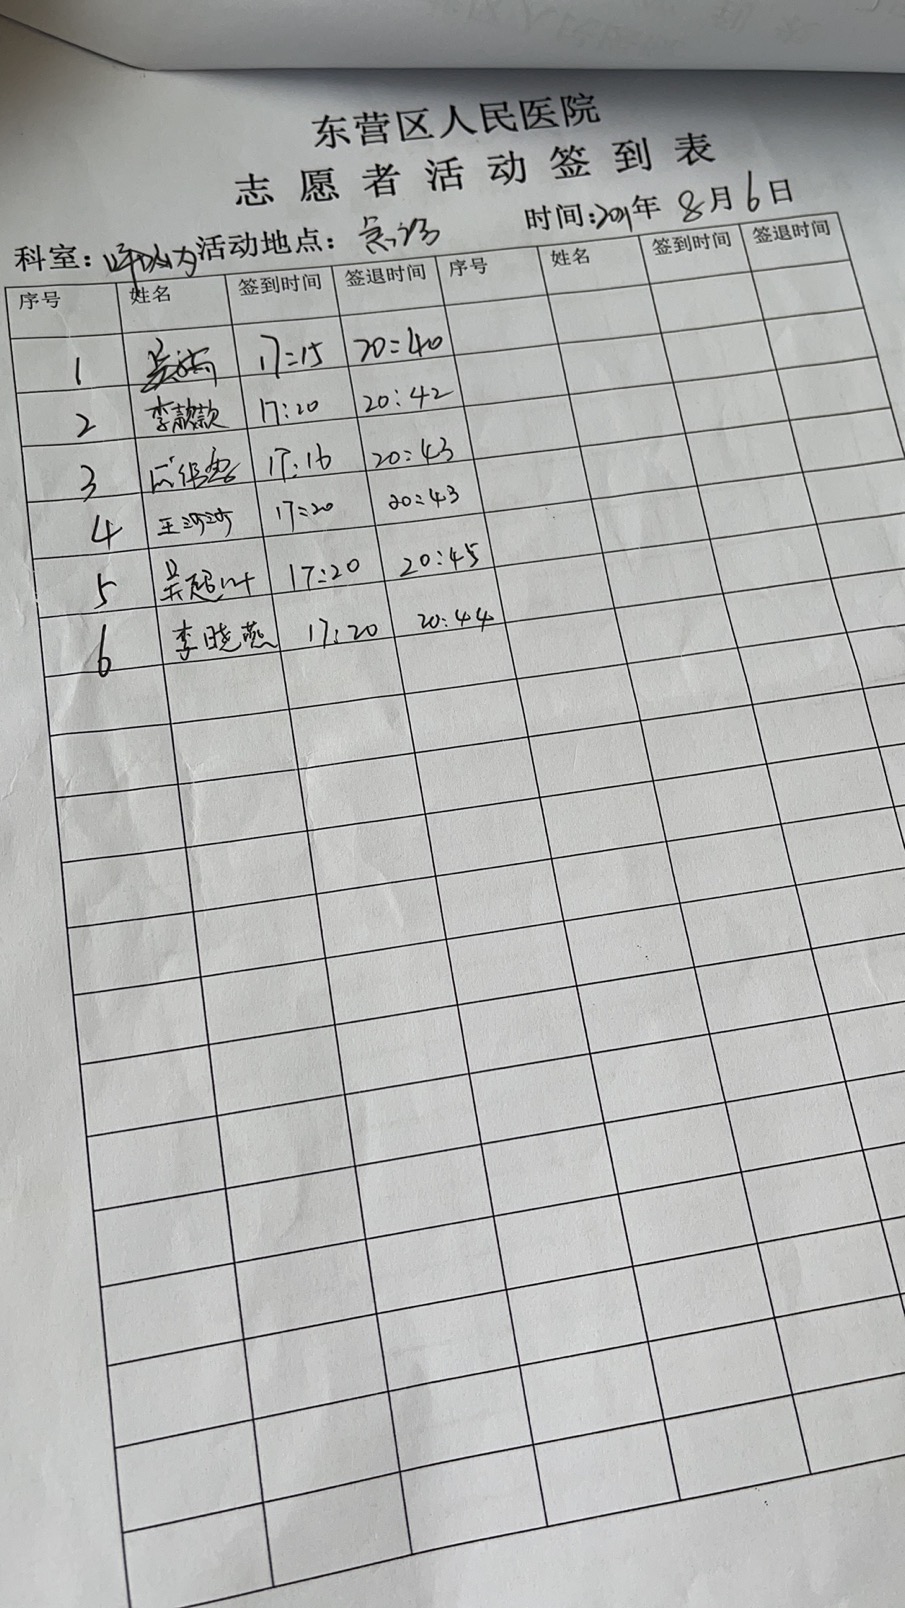 东营区人民医院
志愿者活动签到表
科室: 呼吸内 活动地点: 急诊 时间: 2021年 8月6日
序号 姓名 签到时间 签退时间 序号 姓名 签到时间 签退时间
1 17:15 20:40
2 李款款 17:20 20:42
3 17:16 20:43
4 王沙沙 17:20 20:43
5 吴超叶 17:20 20:45
6 李晓燕 17:20 20:44